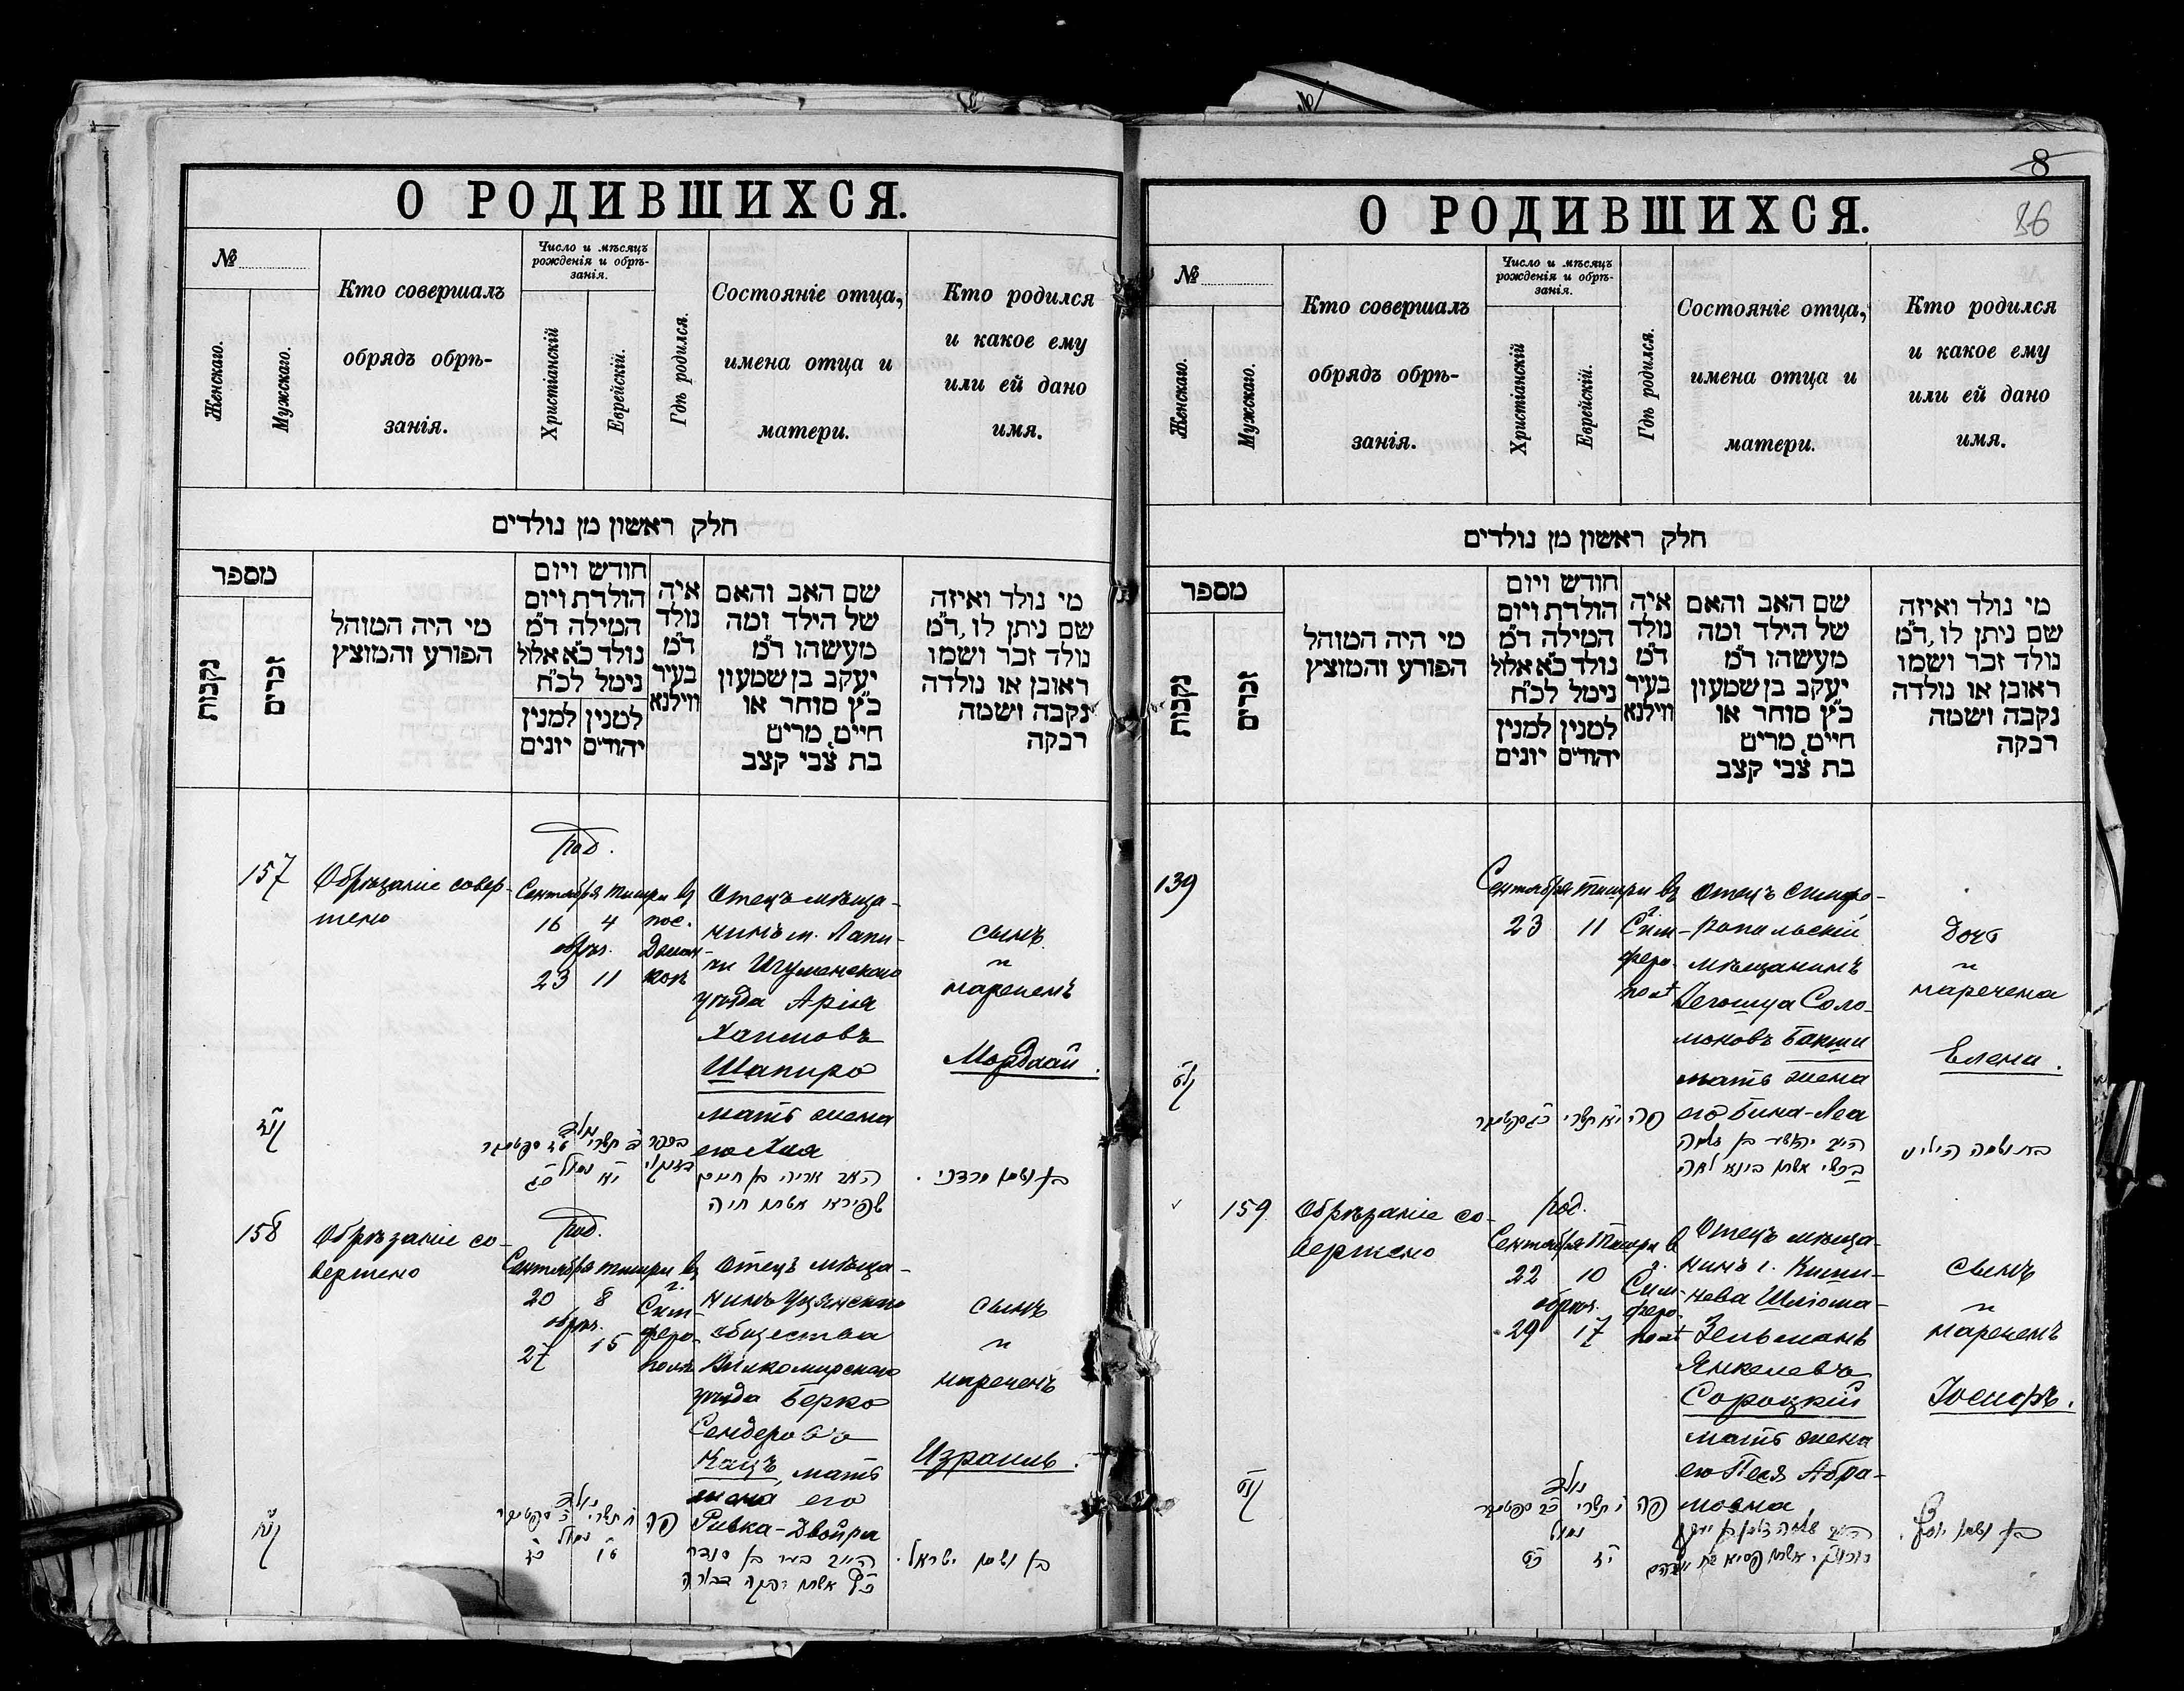 О РОДИВШИХСЯ.
№
Женскаго.
Мужскаго.
Кто совершалъ
обрядъ обрѣ-
занія.
Число и мѣсяцъ
рожденія и обрѣ-
занія.
Христіанскій
Еврейскій.
Гдѣ родился.
Состояніе отца,
имена отца и
матери.
Кто родился
и какое ему
или ей дано
имя.
חלק ראשון מן נולדים
מספר
נקבות
זכרים
מי היה המוהל
הפורע והמוצץ
חודש ויום
הולדת ויום
המילה ד״מ
נולד כ״א אלול
נימל לכ״ח
למנין יהודים
למנין יונים
איה
נולד
ד״מ
בעיר
ווילנא
שם האב והאם
של הילד ומה
מעשהו ד״מ
יעקב בן שמעון
כ״ץ סוחר או
חייט, מרים
בת צבי קצב
מי נולד ואיזה
שם ניתן לו, ד״מ
נולד זכר ושמו
ראובן או נולדה
נקבה ושמה
רבקה
157
Обрѣзаніе совер-
шено
Род.
Сентября Тишри въ
16 4 пос.
обрѣз.
23 11
Отецъ мѣща-
нинъ м. Лапи-
чи Игуменскаго
уѣзда Арія
Хаимовъ
Шапиро
мать жена
его Хая
сынъ
и
нареченъ
Мордхай.
האב אריה בן חיים
שפירא אשתו חיה
בן ושמו מרדכי.
158
Обрѣзаніе со-
вершено
Род.
Сентября Тишри въ
20 8 г. Сим-
обрѣз. феро-
27 15 полѣ
Отецъ мѣща-
нинъ Уцянскаго
общества
Вилкомирскаго
уѣзда Берко
Сендеровъ
Кацъ, мать
жена его
Ривка-Двойра
сынъ
и
нареченъ
Израиль.
פה
כ״ץ אשתו רבקה דבורה
בן ושמו ישראל.
8
36
О РОДИВШИХСЯ.
№
Женскаго.
Мужскаго.
Кто совершалъ
обрядъ обрѣ-
занія.
Число и мѣсяцъ
рожденія и обрѣ-
занія.
Христіанскій
Еврейскій.
Гдѣ родился.
Состояніе отца,
имена отца и
матери.
Кто родился
и какое ему
или ей дано
имя.
חלק ראשון מן נולדים
מספר
נקבות
זכרים
מי היה המוהל
הפורע והמוצץ
חודש ויום
הולדת ויום
המילה ד״מ
נולד כ״א אלול
נימל לכ״ח
למנין יהודים
למנין יונים
איה
נולד
ד״מ
בעיר
ווילנא
שם האב והאם
של הילד ומה
מעשהו ד״מ
יעקב בן שמעון
כ״ץ סוחר או
חייט, מרים
בת צבי קצב
מי נולד ואיזה
שם ניתן לו, ד״מ
נולד זכר ושמו
ראובן או נולדה
נקבה ושמה
רבקה
139
Сентября Тишри въ
23 11 г. Сим-
феро-
пол.
Отецъ симфе-
ропольскій
мѣщанинъ
Іегошуа Соло-
моновъ Бакши
мать жена
его Бина-Леа
Дочь
и
наречена
Елена.
פה
בקשי אשתו בינא לאה
בת ושמה הילינע
159
Обрѣзаніе со-
вершено
Род.
Сентября Тишри въ
22 10 г. Сим-
обрѣз. феро-
29 17 пол.
Отецъ мѣща-
нинъ г. Киши-
нева Шліома-
Зельманъ
Янкелевъ
Сороцкій
мать жена
его Песя Абра-
мовна
сынъ
и
нареченъ
Іосифъ.
פה
בן ושמו יוסף.